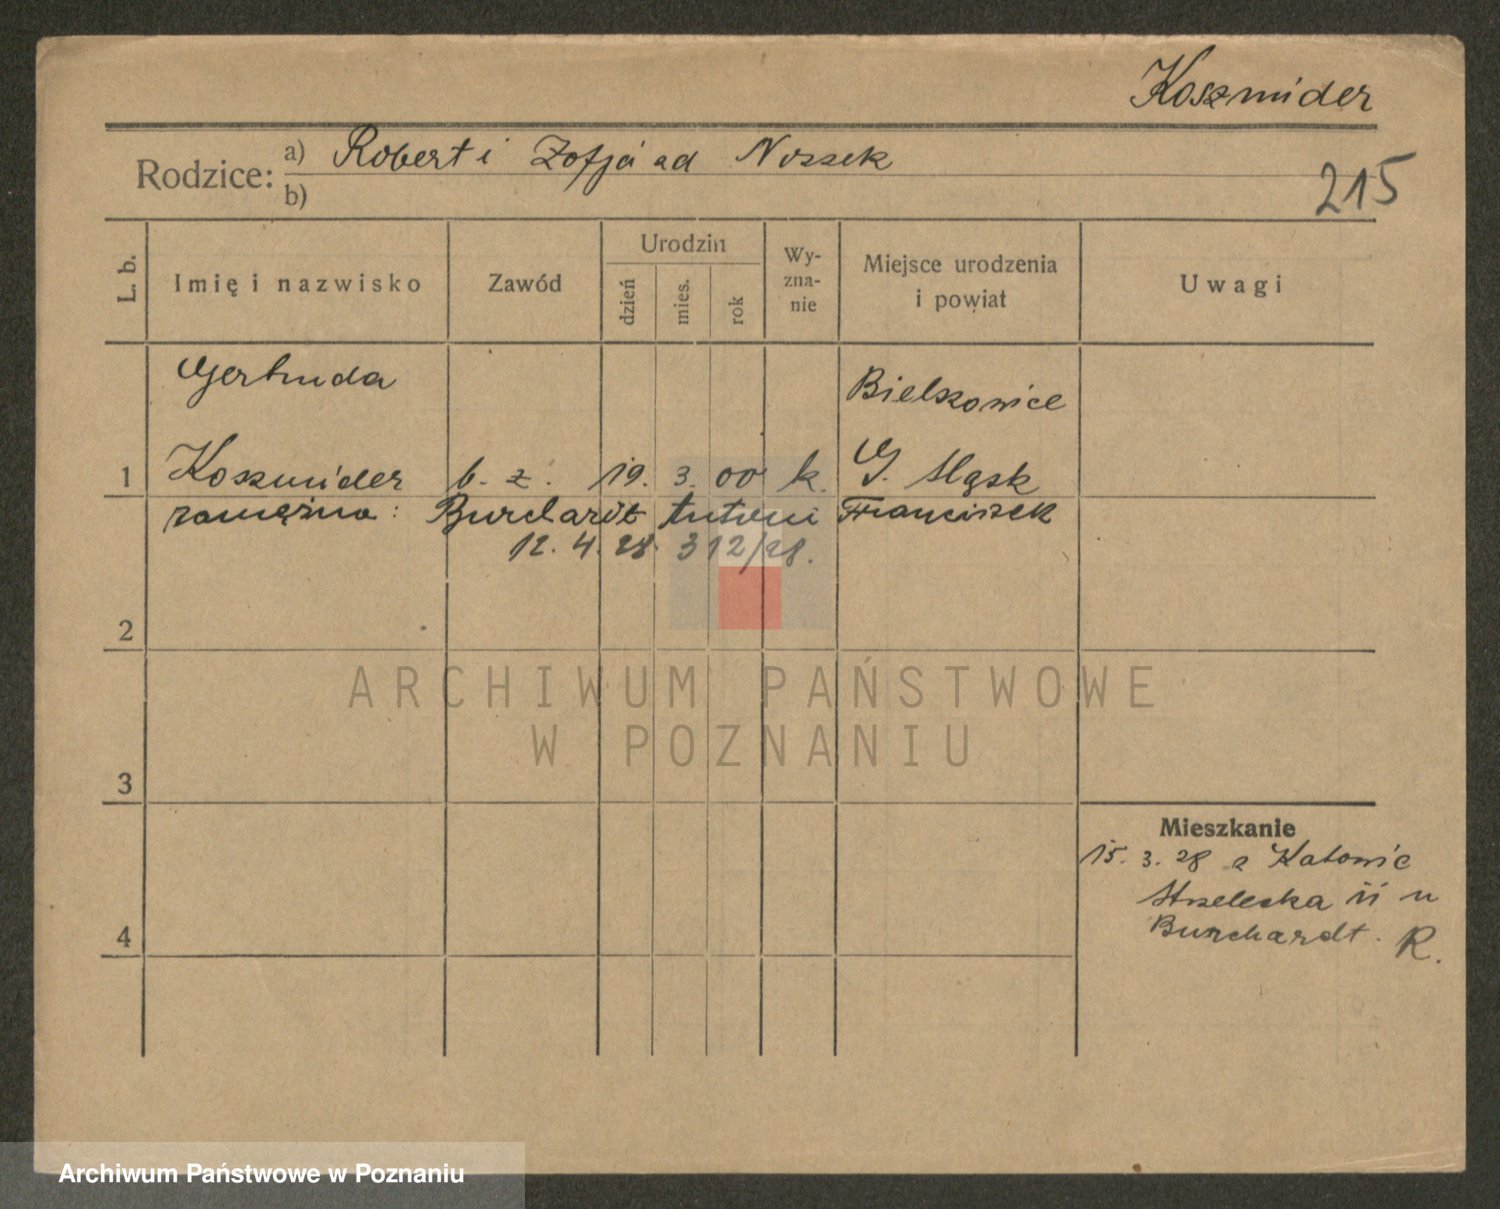 Koszmider
Rodzice: a) Robert i Zofja ad Nossek
b)
215
L. b. Imię i nazwisko Zawód Urodzin dzień mies. rok Wy-zna-nie Miejsce urodzenia i powiat Uwagi
Gertruda Bielszowice
1 Koszmider b. z. 19. 3. 00 k. G. Śląsk
zamężna: Burchardt tutejsi Franciszek
12. 4. 28. 312/28.
2
ARCHIWUM PAŃSTWOWE
W POZNANIU
3
Mieszkanie
15. 3. 28 z Katowic
Strzelecka 11 u
4 Burchardt. R.
Archiwum Państwowe w Poznaniu